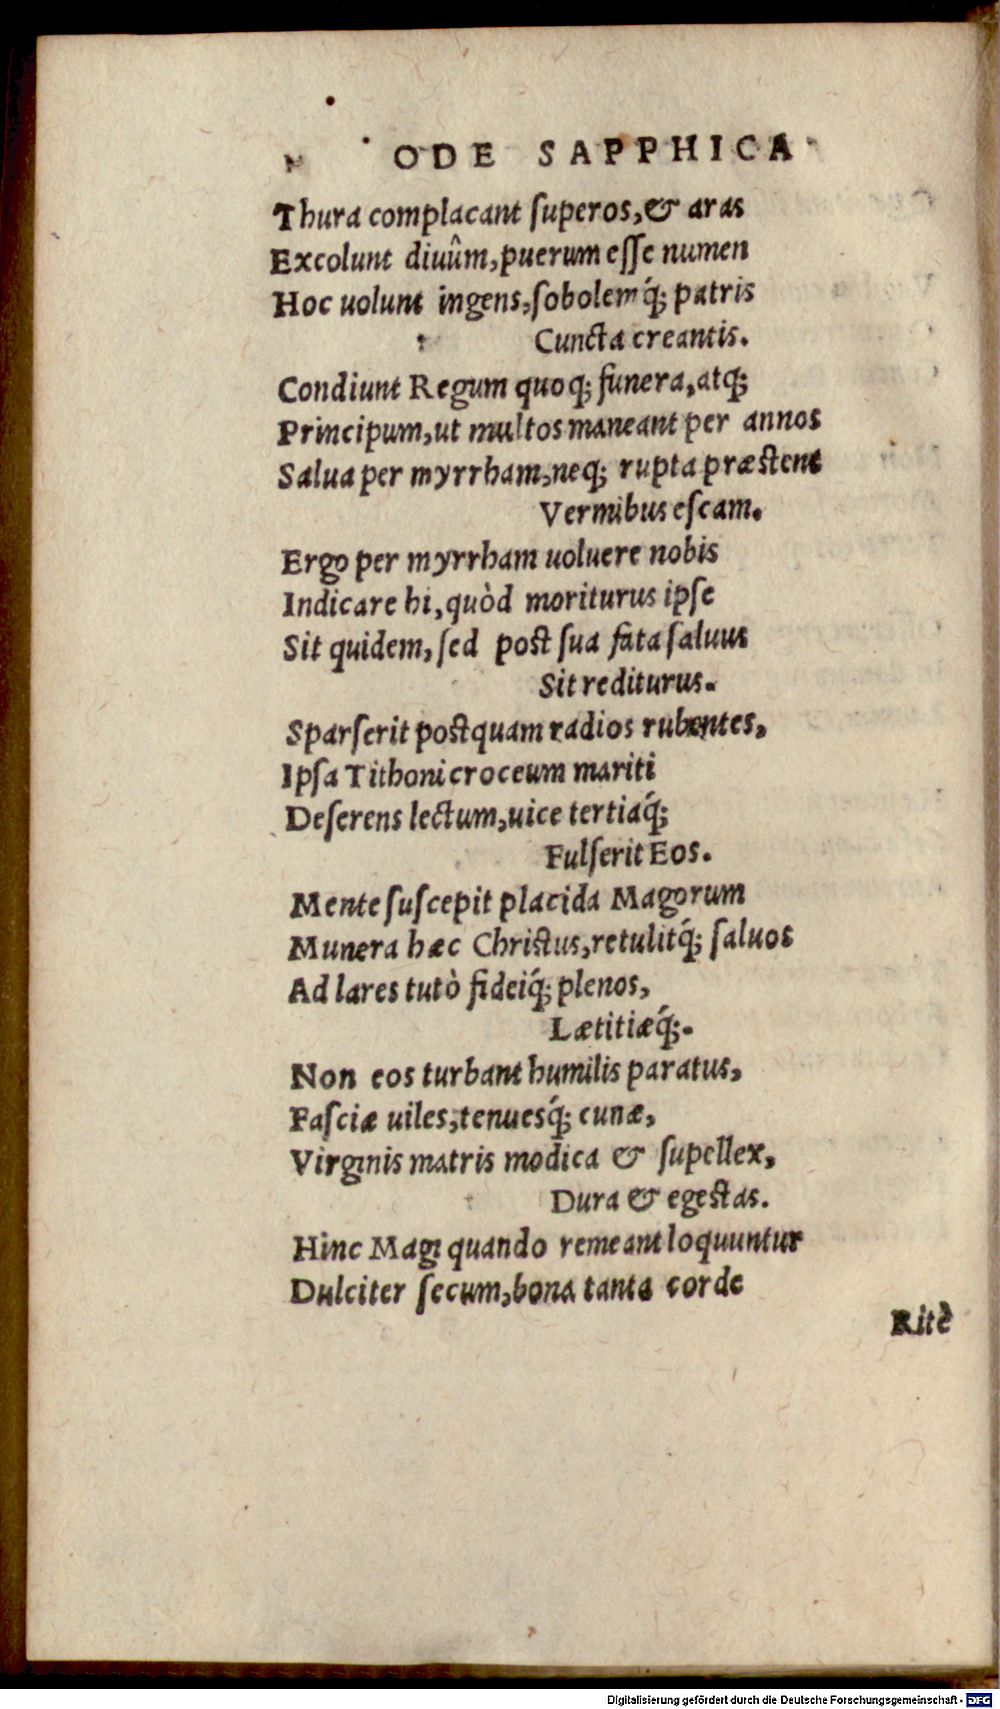 ODE SAPPHICA
Thura complacant ſuperos, & aras
Excolunt diuûm, puerum eſſe numen
Hoc uolunt ingens, ſobolemq́; patris
Cuncta creantis.
Condiunt Regum quoq; funera, atq;
Principum, ut multos maneant per annos
Salua per myrrham, neq; rupta præſtent
Vermibus eſcam.
Ergo per myrrham uoluere nobis
Indicare hi, quòd moriturus ipſe
Sit quidem, ſed poſt ſua fata ſaluus
Sit rediturus.
Sparſerit poſtquam radios rubentes,
Ipſa Tithoni croceum mariti
Deſerens lectum, uice tertiaq́;
Fulſerit Eos.
Mente ſuſcepit placida Magorum
Munera hæc Chriſtus, retulitq́; ſaluos
Ad lares tutò fideiq́; plenos,
Lætitiæq́;.
Non eos turbant humilis paratus,
Faſciæ uiles, tenuesq́; cunæ,
Virginis matris modica & ſupellex,
Dura & egeſtas.
Hinc Magi quando remeant loquuntur
Dulciter ſecum, bona tanta corde
Ritè
Digitalisierung gefördert durch die Deutsche Forschungsgemeinschaft - DFG